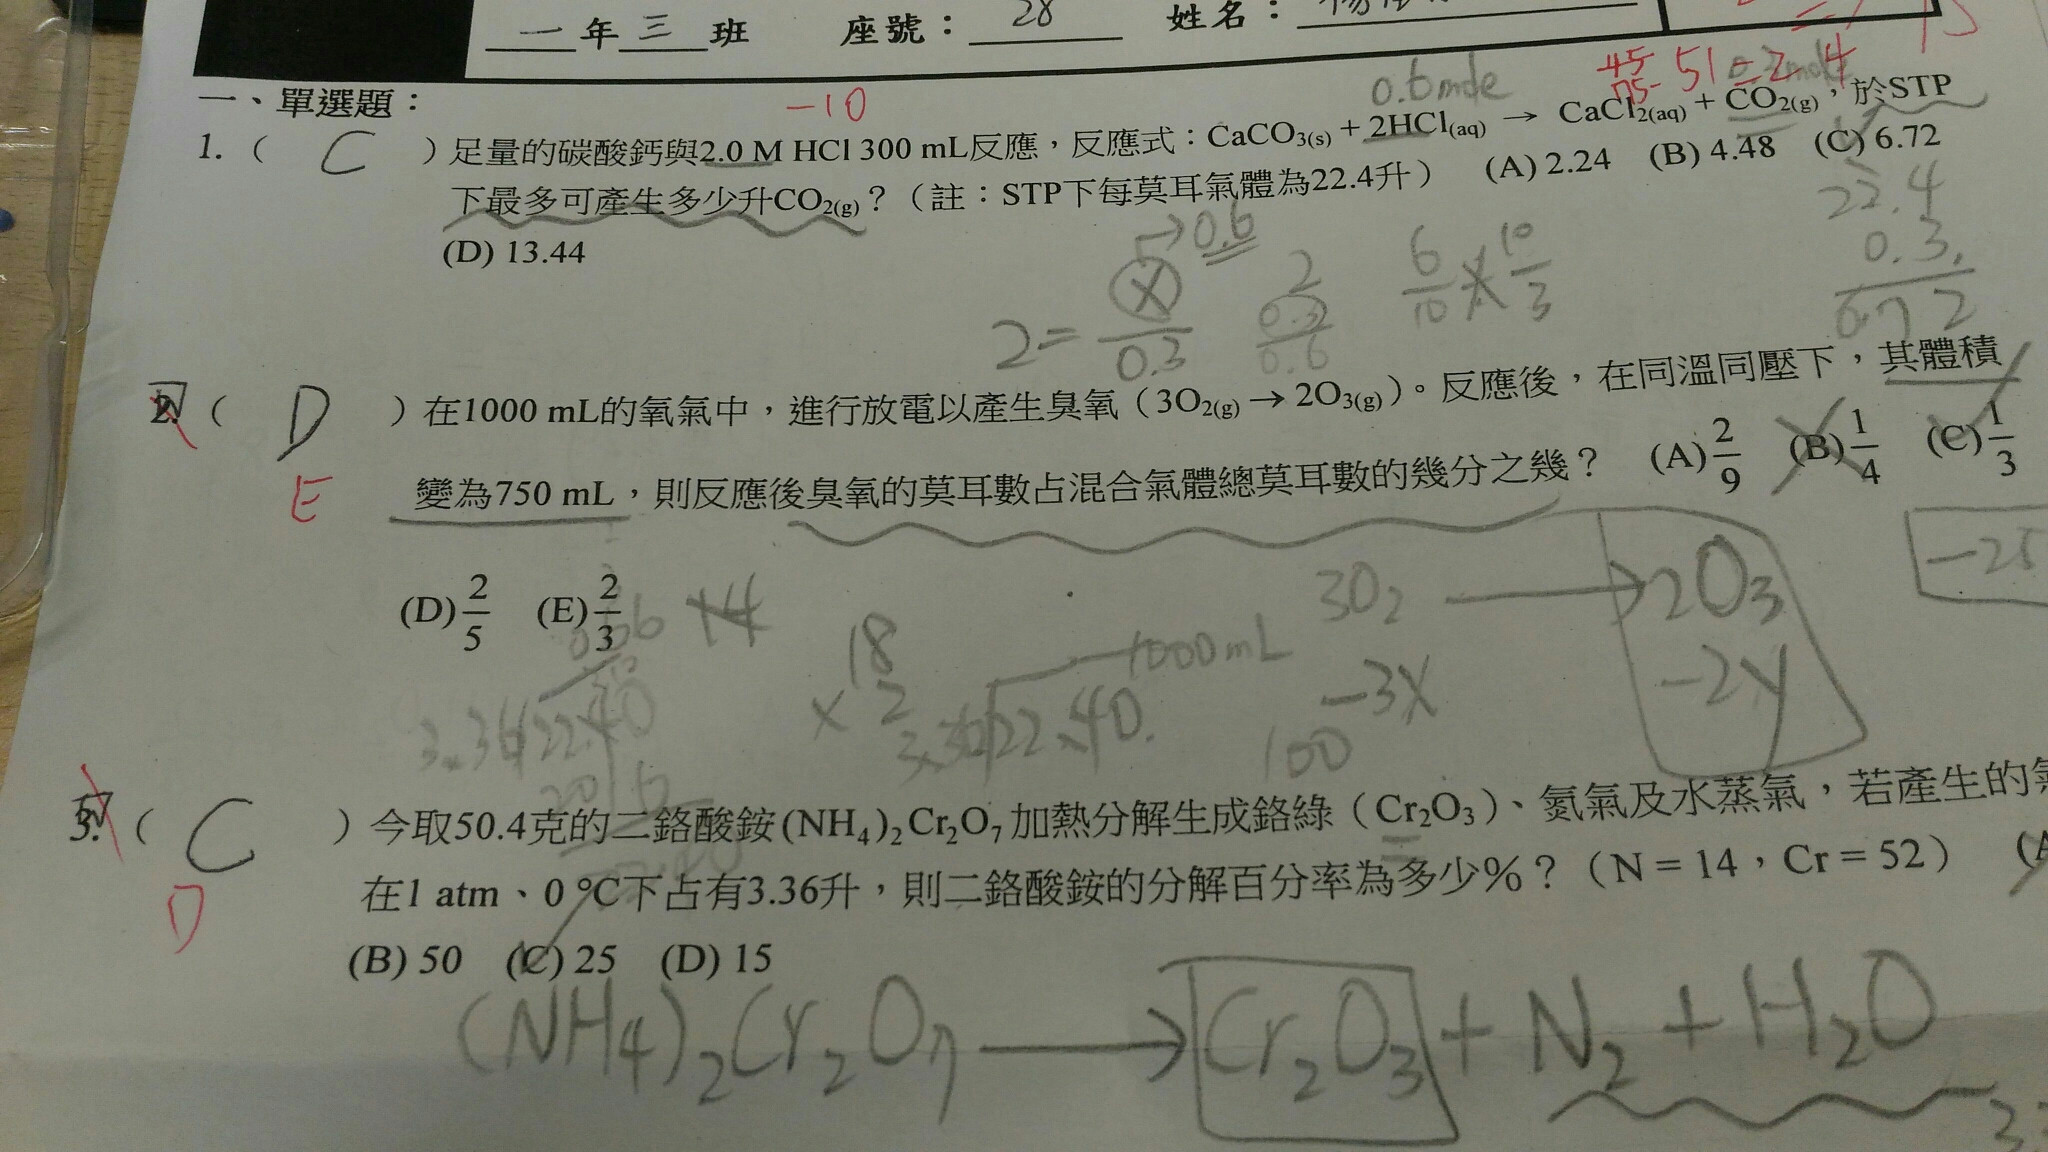 一年三班 座號：28 姓名：
45 51 = 2 4
75-
0.6 mole
一、單選題： -10
1. ( C ) 足量的碳酸鈣與2.0 M HCl 300 mL反應，反應式：CaCO3(s) + 2HCl(aq) → CaCl2(aq) + CO2(g)，於STP
下最多可產生多少升CO2(g)？（註：STP下每莫耳氣體為22.4升） (A) 2.24 (B) 4.48 (C) 6.72
(D) 13.44
2 = X/0.3 → 0.6
2 0.3 0.6
6/10 × 10/3
22.4
0.3
6.72
2. ( D ) 在1000 mL的氧氣中，進行放電以產生臭氧（3O2(g) → 2O3(g)）。反應後，在同溫同壓下，其體積
E
變為750 mL，則反應後臭氧的莫耳數占混合氣體總莫耳數的幾分之幾？ (A) 2/9 (B) 1/4 (C) 1/3
(D) 2/5 (E) 2/3
3O2 → 2O3
-25
-3X -2y
1000mL
18
× 2
3.36 22.40
3.36 22.40
100
3. ( C ) 今取50.4克的二鉻酸銨(NH4)2Cr2O7加熱分解生成鉻綠（Cr2O3）、氮氣及水蒸氣，若產生的氮
D
在1 atm、0 °C下占有3.36升，則二鉻酸銨的分解百分率為多少%？（N = 14，Cr = 52） (A
(B) 50 (C) 25 (D) 15
(NH4)2Cr2O7 → Cr2O3 + N2 + H2O